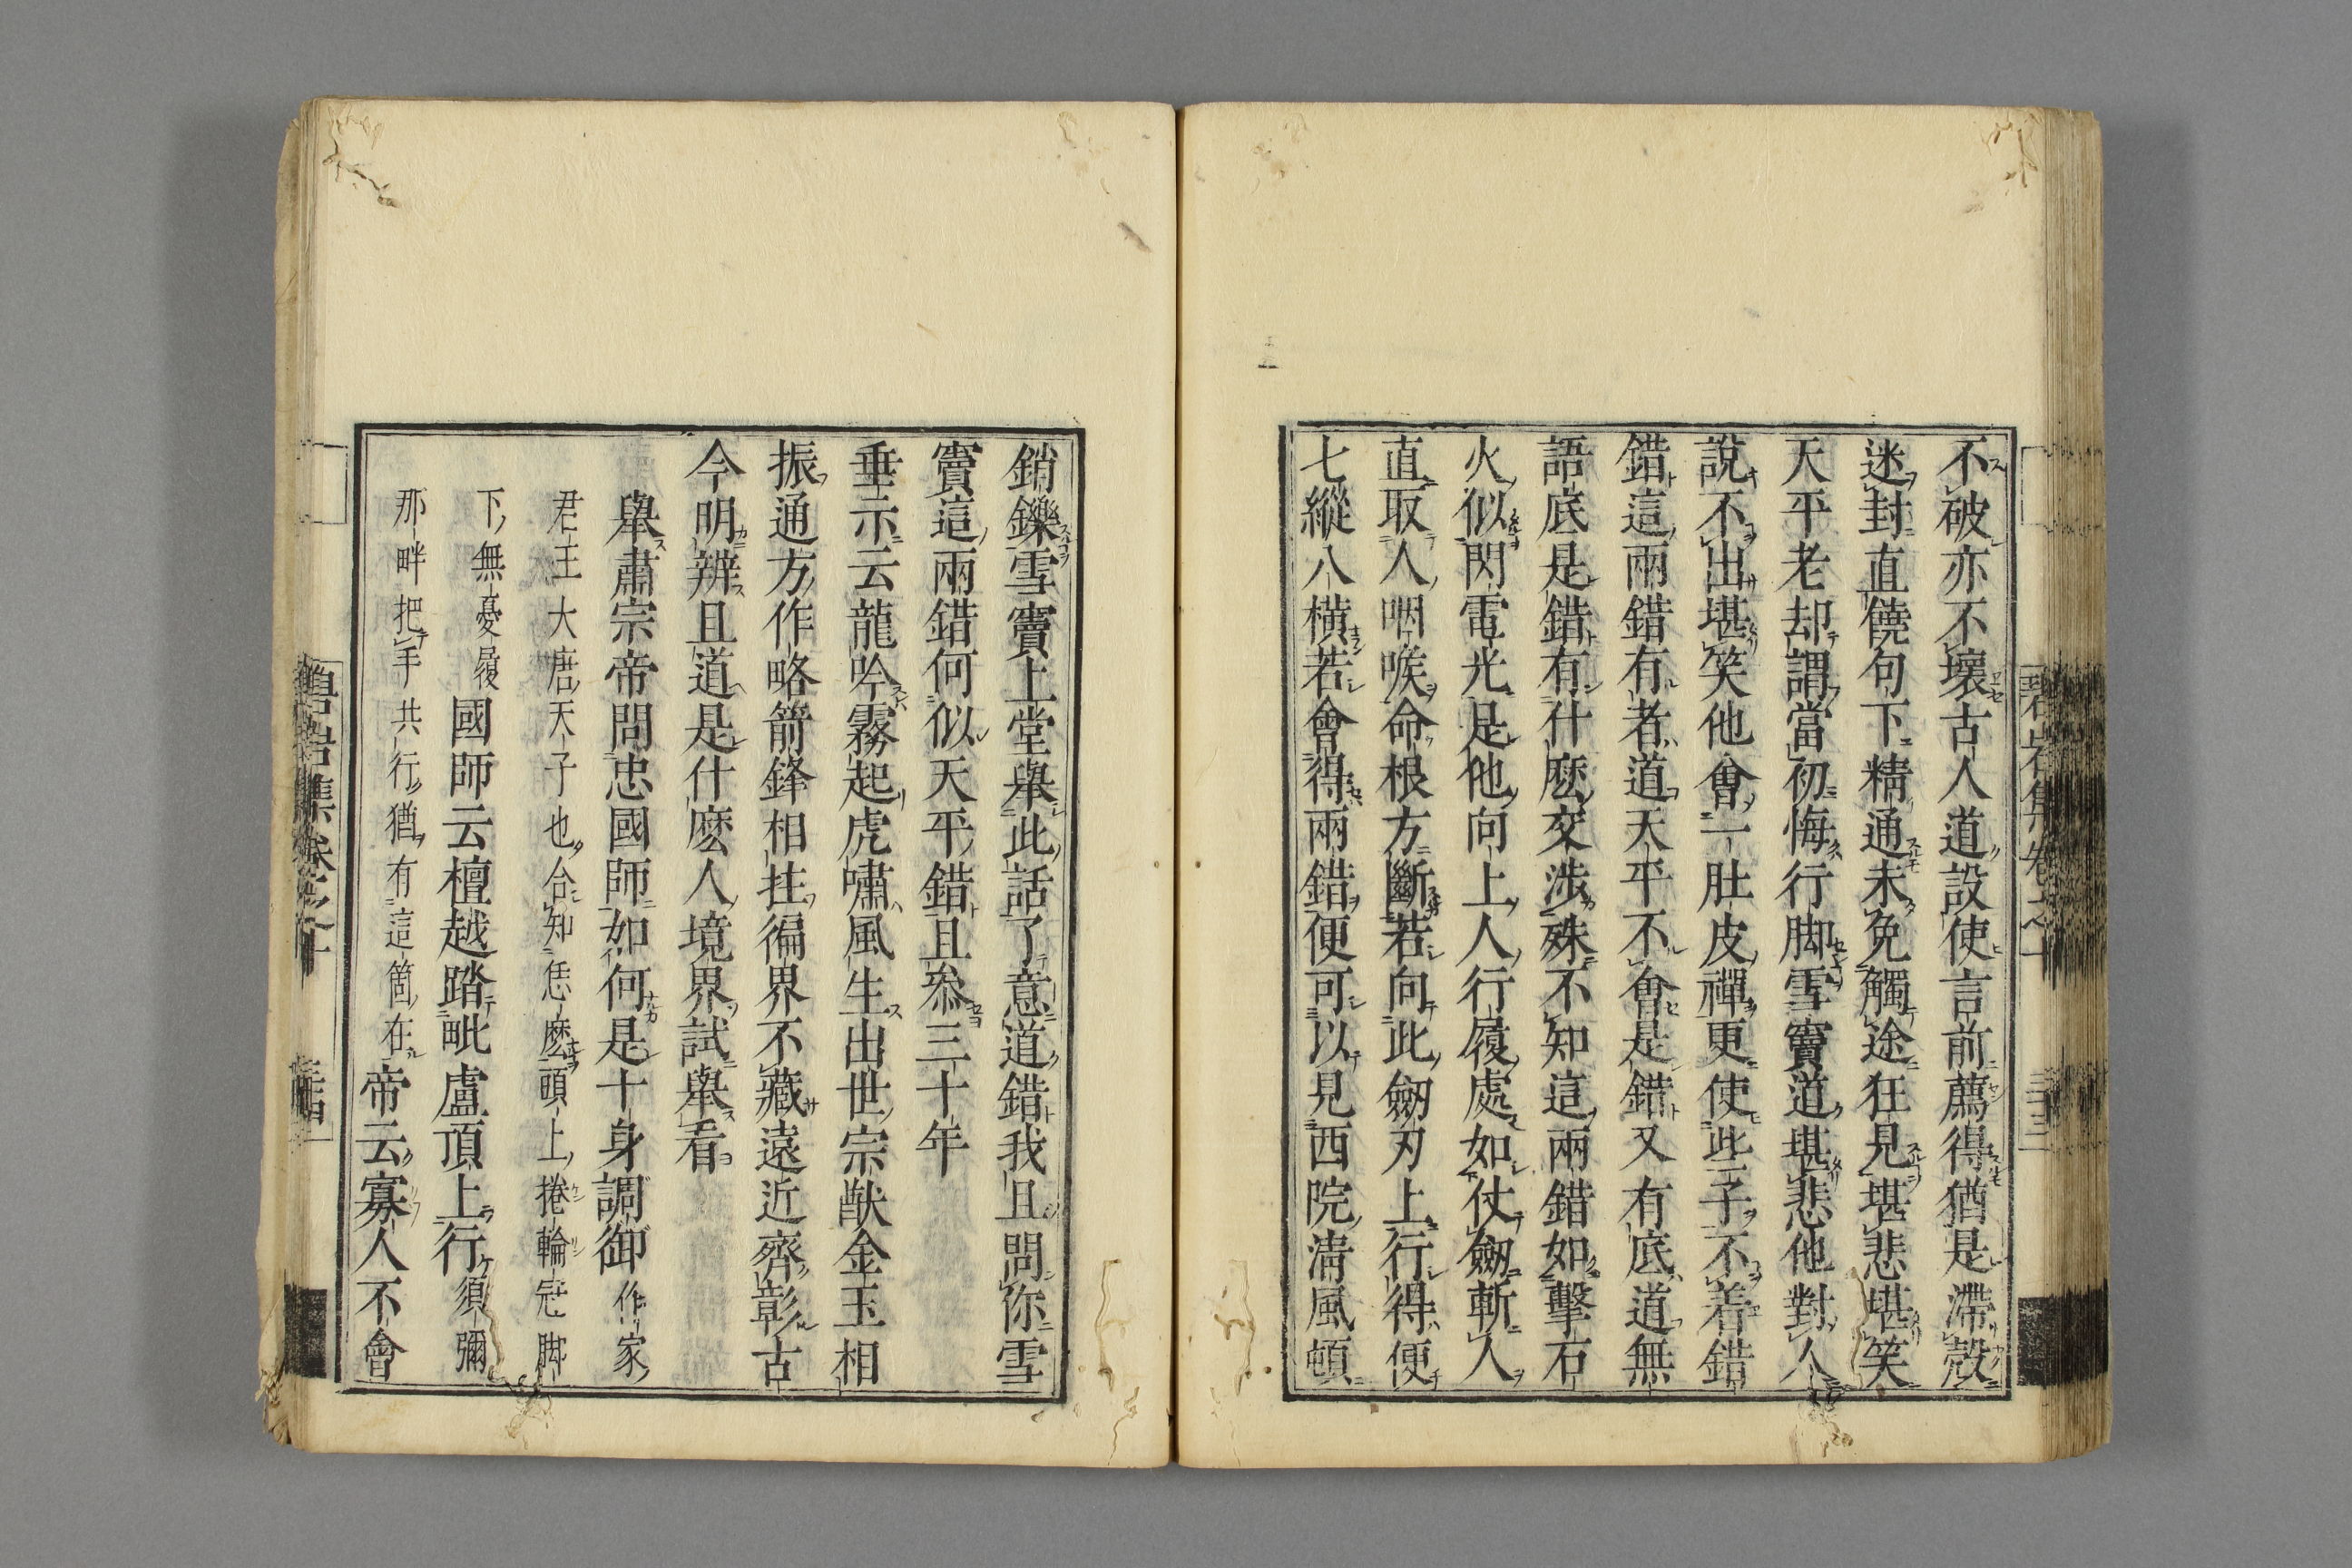 不破亦不壞古人道設使言前薦得猶是滯殼
迷封直饒句下精通未免觸途狂見堪悲堪笑
天平老却謂當初悔行脚雪竇道堪悲他對人
說不出堪笑他會一肚皮禪更使些子不着錯
錯這兩錯有者道天平不會是錯又有底道無
語底是錯有什麽交涉殊不知這兩錯如擊石
火似閃電光是他向上人行履處如仗劔斬人
直取人咽喉命根方斷若向此劔刃上行得便
七縱八橫若會得兩錯便可以見西院淸風頓
碧岩集卷之十
銷鑠雪竇上堂舉此話了意道錯我且問你雪
竇這兩錯何似天平錯且叅三十年
垂示云龍吟霧起虎嘯風生出世宗猷金玉相
振通方作略箭鋒相拄徧界不藏遠近齊彰古
今明辨且道是什麽人境界試舉看
舉肅宗帝問忠國師如何是十身調御作家
君王大唐天子也合知恁麽頭上捲輪冠脚
下無憂履國師云檀越踏毗盧頂上行須彌
那畔把手共行猶有這箇在帝云寡人不會
碧岩集卷之十